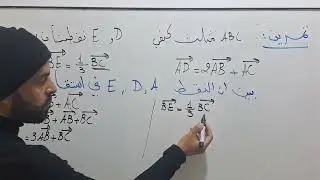 تمرين: ABC مثلث كيفي D, E نقطتان
$\overrightarrow{AD} = 2\overrightarrow{AB} + \overrightarrow{AC}$ $\overrightarrow{BE} = \frac{1}{3}\overrightarrow{BC}$
بين ان النقط E , D , A في
$\overrightarrow{BE} = \frac{1}{3}\overrightarrow{BC}$
$+ \overrightarrow{AC}$
$+ \overrightarrow{AB} + \overrightarrow{BC}$
$= 3\overrightarrow{AB} + \overrightarrow{BC}$